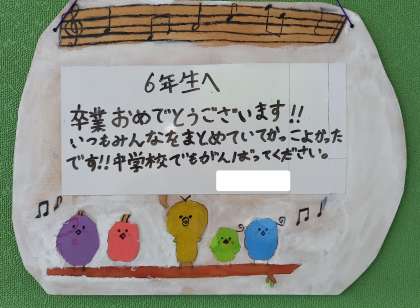 6年生へ
卒業おめでとうございます!!
いつもみんなをまとめていてかっこよかった
です!!中学校でもがんばってください。